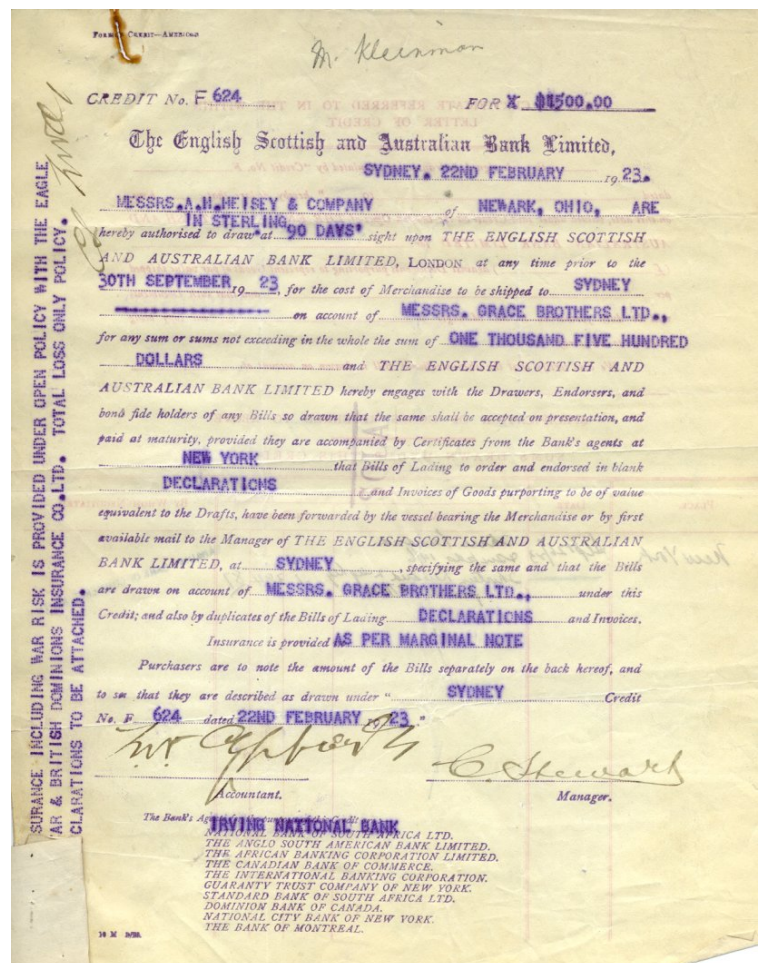 FORM CREDIT—AMERICAN
M. Kleinman
CREDIT No. F 624 FOR X $1500.00
The English Scottish and Australian Bank Limited,
SYDNEY. 22ND FEBRUARY 1923.
MESSRS.A.H.HEISEY & COMPANY of NEWARK, OHIO, ARE
IN STERLING
hereby authorised to draw at 90 DAYS' sight upon THE ENGLISH SCOTTISH
AND AUSTRALIAN BANK LIMITED, LONDON at any time prior to the
30TH SEPTEMBER 1923, for the cost of Merchandise to be shipped to SYDNEY
on account of MESSRS. GRACE BROTHERS LTD.,
for any sum or sums not exceeding in the whole the sum of ONE THOUSAND FIVE HUNDRED
DOLLARS and THE ENGLISH SCOTTISH AND
AUSTRALIAN BANK LIMITED hereby engages with the Drawers, Endorsers, and
bonâ fide holders of any Bills so drawn that the same shall be accepted on presentation, and
paid at maturity, provided they are accompanied by Certificates from the Bank's agents at
NEW YORK that Bills of Lading to order and endorsed in blank
DECLARATIONS and Invoices of Goods purporting to be of value
equivalent to the Drafts, have been forwarded by the vessel bearing the Merchandise or by first
available mail to the Manager of THE ENGLISH SCOTTISH AND AUSTRALIAN
BANK LIMITED, at SYDNEY, specifying the same and that the Bills
are drawn on account of MESSRS. GRACE BROTHERS LTD., under this
Credit; and also by duplicates of the Bills of Lading DECLARATIONS and Invoices.
Insurance is provided AS PER MARGINAL NOTE
Purchasers are to note the amount of the Bills separately on the back hereof, and
to see that they are described as drawn under "SYDNEY Credit
No. F 624 dated 22ND FEBRUARY 1923"
C. Stewart
Accountant. Manager.
The Bank's
IRVING NATIONAL BANK
NATIONAL BANK OF SOUTH AFRICA LTD.
THE ANGLO SOUTH AMERICAN BANK LIMITED.
THE AFRICAN BANKING CORPORATION LIMITED.
THE CANADIAN BANK OF COMMERCE.
THE INTERNATIONAL BANKING CORPORATION.
GUARANTY TRUST COMPANY OF NEW YORK.
STANDARD BANK OF SOUTH AFRICA LTD.
DOMINION BANK OF CANADA.
NATIONAL CITY BANK OF NEW YORK.
THE BANK OF MONTREAL.
SURANCE INCLUDING WAR RISK IS PROVIDED UNDER OPEN POLICY WITH THE EAGLE
AR & BRITISH DOMINIONS INSURANCE CO.LTD. TOTAL LOSS ONLY POLICY.
CLARATIONS TO BE ATTACHED.